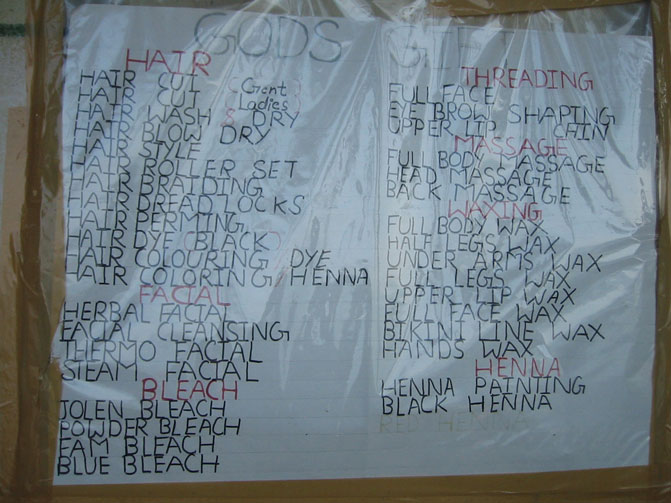 GODS GIFT
HAIR
HAIR CUT (Gent)
HAIR CUT (Ladies)
HAIR WASH & DRY
HAIR BLOW DRY
HAIR STYLE
HAIR ROLLER SET
HAIR BRAIDING
HAIR DREAD LOCKS
HAIR PERMING
HAIR DYE (BLACK)
HAIR COLOURING / DYE
HAIR COLORING / HENNA
FACIAL
HERBAL FACIAL
FACIAL CLEANSING
THERMO FACIAL
STEAM FACIAL
BLEACH
JOLEN BLEACH
POWDER BLEACH
FAM BLEACH
BLUE BLEACH
THREADING
FULL FACE
EYE BROW SHAPING
UPPER LIP CHIN
MASSAGE
FULL BODY MASSAGE
HEAD MASSAGE
BACK MASSAGE
WAXING
FULL BODY WAX
HALF LEGS WAX
UNDER ARMS WAX
FULL LEGS WAX
UPPER LIP WAX
FULL FACE WAX
BIKINI LINE WAX
HANDS WAX
HENNA
HENNA PAINTING
BLACK HENNA
RED HENNA